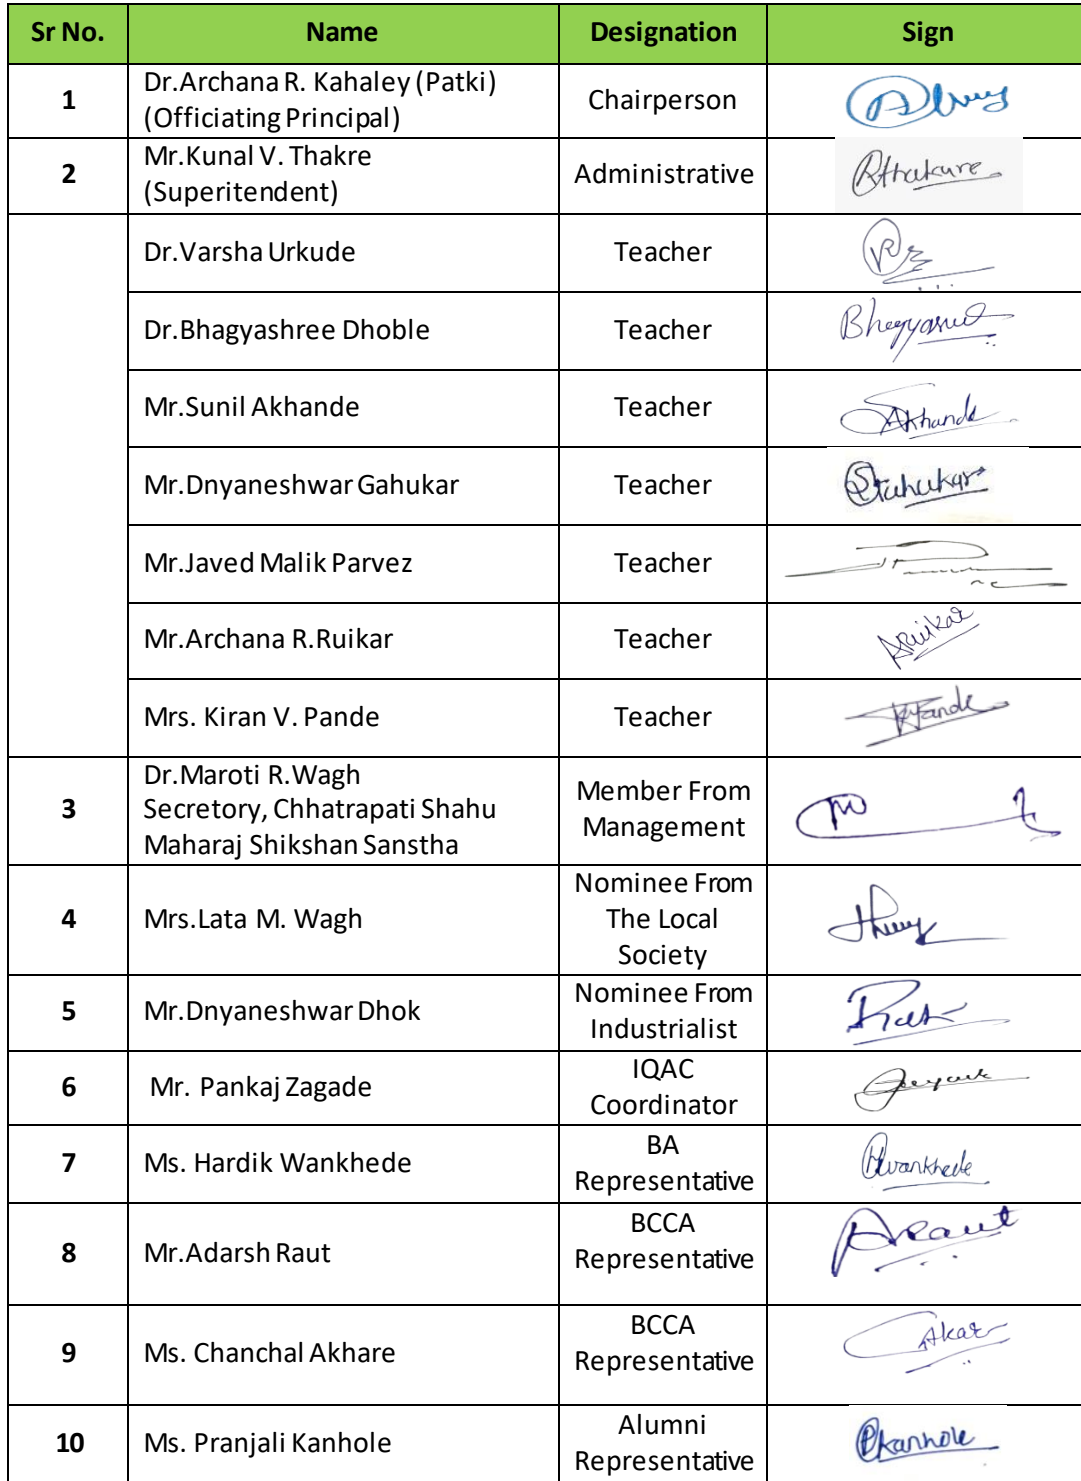 Sr No. Name Designation Sign
1 Dr.Archana R. Kahaley (Patki)
(Officiating Principal) Chairperson
2 Mr.Kunal V. Thakre
(Superitendent) Administrative Rthakure
Dr.Varsha Urkude Teacher
Dr.Bhagyashree Dhoble Teacher
Mr.Sunil Akhande Teacher SAkhande
Mr.Dnyaneshwar Gahukar Teacher
Mr.Javed Malik Parvez Teacher
Mr.Archana R.Ruikar Teacher ARuikar
Mrs. Kiran V. Pande Teacher
3 Dr.Maroti R.Wagh
Secretory, Chhatrapati Shahu
Maharaj Shikshan Sanstha Member From
Management
4 Mrs.Lata M. Wagh Nominee From
The Local
Society
5 Mr.Dnyaneshwar Dhok Nominee From
Industrialist
6 Mr. Pankaj Zagade IQAC
Coordinator
7 Ms. Hardik Wankhede BA
Representative Hwankhede
8 Mr.Adarsh Raut BCCA
Representative ARaut
9 Ms. Chanchal Akhare BCCA
Representative
10 Ms. Pranjali Kanhole Alumni
Representative Pkanhole